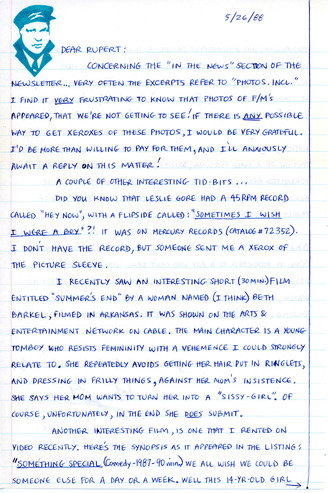 5/26/88
DEAR RUPERT:
CONCERNING THE "IN THE NEWS" SECTION OF THE
NEWSLETTER... VERY OFTEN THE EXCERPTS REFER TO "PHOTOS. INCL."
I FIND IT VERY FRUSTRATING TO KNOW THAT PHOTOS OF F/M'S
APPEARED, THAT WE'RE NOT GETTING TO SEE! IF THERE IS ANY POSSIBLE
WAY TO GET XEROXES OF THESE PHOTOS, I WOULD BE VERY GRATEFUL.
I'D BE MORE THAN WILLING TO PAY FOR THEM, AND I'LL ANXIOUSLY
AWAIT A REPLY ON THIS MATTER!
A COUPLE OF OTHER INTERESTING TID-BITS...
DID YOU KNOW THAT LESLIE GORE HAD A 45RPM RECORD
CALLED "HEY NOW", WITH A FLIPSIDE CALLED: "SOMETIMES I WISH
I WERE A BOY"?! IT WAS ON MERCURY RECORDS (CATALOG #72352).
I DON'T HAVE THE RECORD, BUT SOMEONE SENT ME A XEROX OF
THE PICTURE SLEEVE.
I RECENTLY SAW AN INTERESTING SHORT (30MIN) FILM
ENTITLED "SUMMER'S END" BY A WOMAN NAMED (I THINK) BETH
BARKEL, FILMED IN ARKANSAS. IT WAS SHOWN ON THE ARTS &
ENTERTAINMENT NETWORK ON CABLE. THE MAIN CHARACTER IS A YOUNG
TOMBOY WHO RESISTS FEMININITY WITH A VEHEMENCE I COULD STRONGLY
RELATE TO. SHE REPEATEDLY AVOIDS GETTING HER HAIR PUT IN RINGLETS,
AND DRESSING IN FRILLY THINGS, AGAINST HER MOM'S INSISTENCE.
SHE SAYS HER MOM WANTS TO TURN HER INTO A "SISSY-GIRL". OF
COURSE, UNFORTUNATELY, IN THE END SHE DOES SUBMIT.
ANOTHER INTERESTING FILM, IS ONE THAT I RENTED ON
VIDEO RECENTLY. HERE'S THE SYNOPSIS AS IT APPEARED IN THE LISTING:
"SOMETHING SPECIAL (Comedy-1987-90 min) WE ALL WISH WE COULD BE
SOMEONE ELSE FOR A DAY OR A WEEK. WELL THIS 14-YR-OLD GIRL